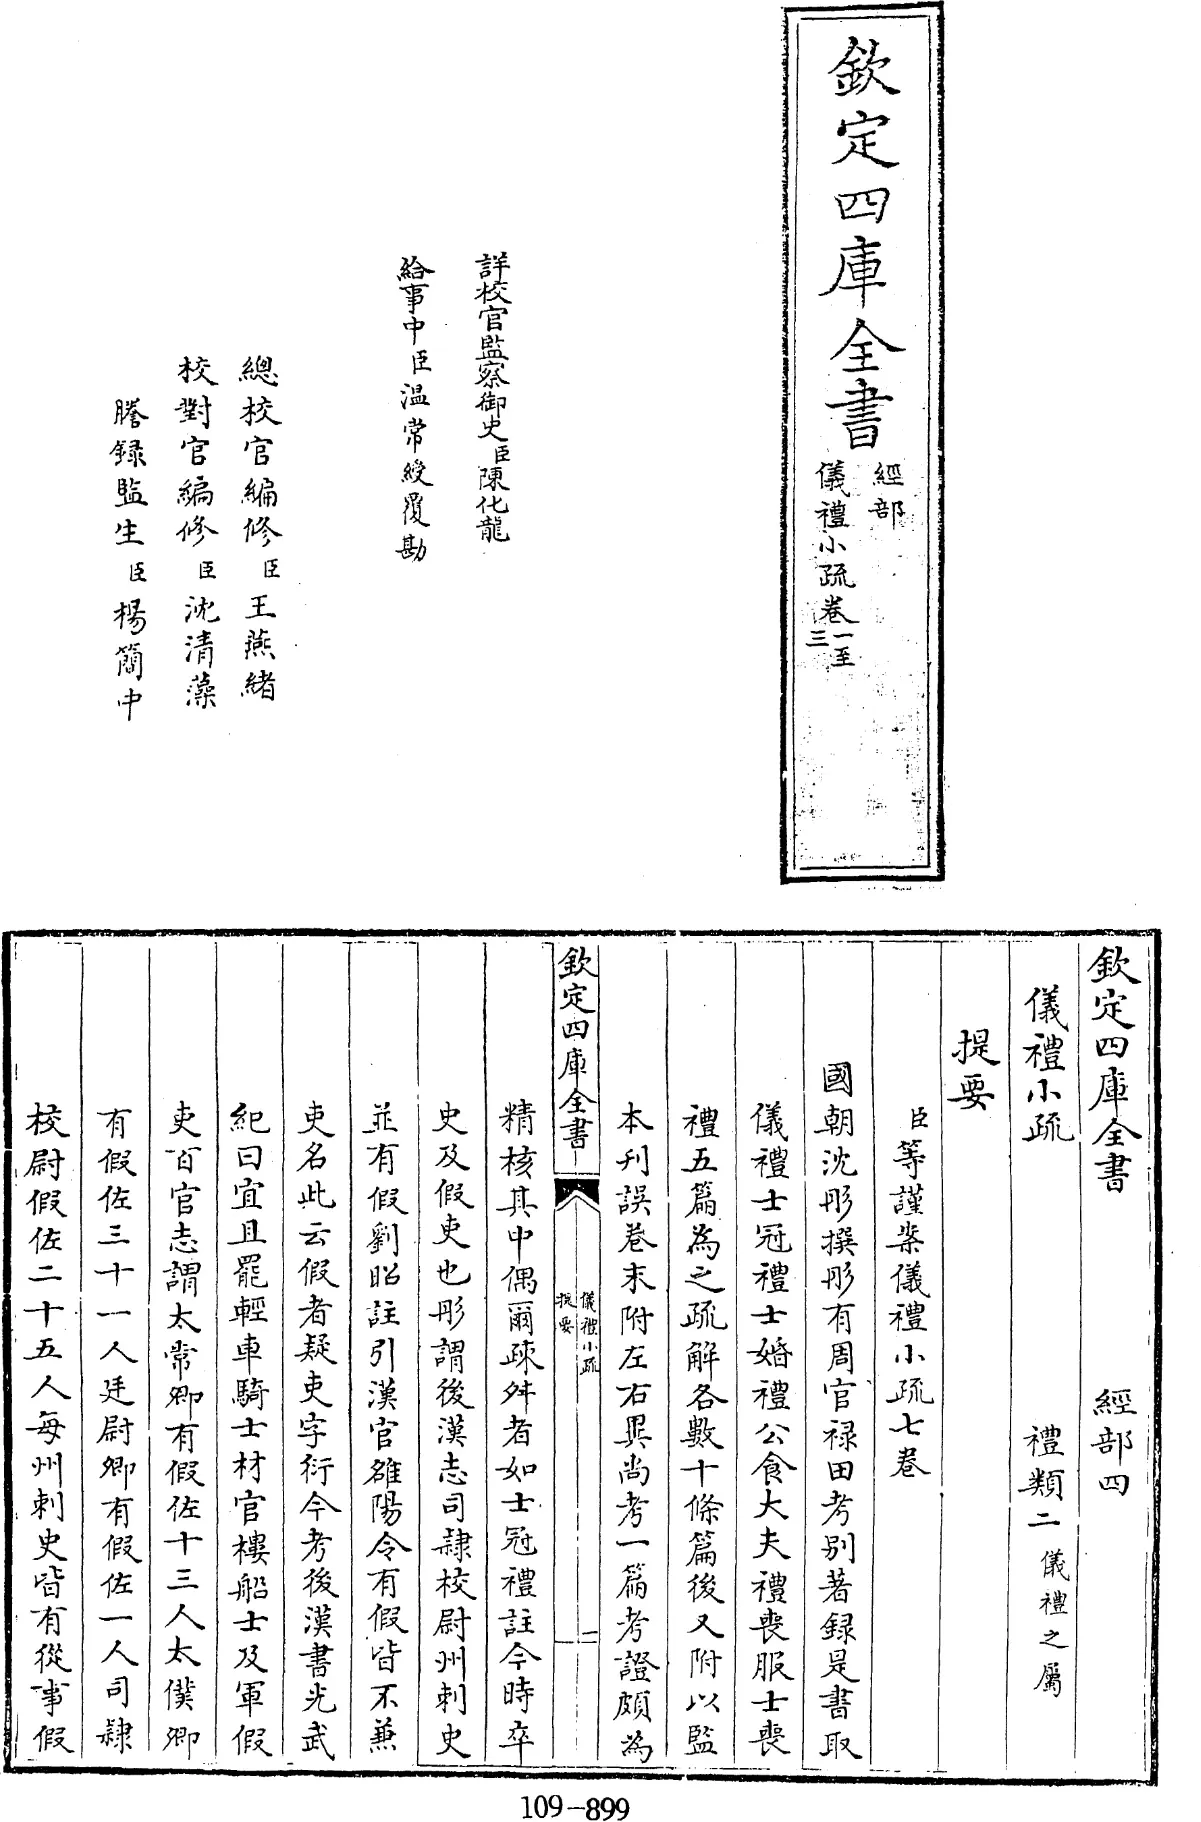 欽定四庫全書
經部
儀禮小疏卷一至三
詳校官監察御史臣陳化龍
給事中臣溫常綬覆勘
總校官編修臣王燕緒
校對官編修臣沈清藻
謄録監生臣楊簡中
欽定四庫全書 經部四
儀禮小疏 禮類二儀禮之屬
提要
臣等謹案儀禮小疏七卷
國朝沈彤撰彤有周官禄田考别著録是書取
儀禮士冠禮士婚禮公食大夫禮喪服士喪
禮五篇為之疏解各數十條篇後又附以監
本刋誤卷末附左右異尚考一篇考證頗為
欽定四庫全書
儀禮小疏
提要
二
精核其中偶爾疎舛者如士冠禮註今時卒
史及假吏也彤謂後漢志司隷校尉州刺史
並有假劉昭註引漢官雒陽令有假皆不兼
吏名此云假者疑吏字衍今考後漢書光武
紀曰宜且罷輕車騎士材官樓船士及軍假
吏百官志謂太常卿有假佐十三人太僕卿
有假佐三十一人廷尉卿有假佐一人司隷
校尉假佐二十五人每州刺史皆有從事假
109-899